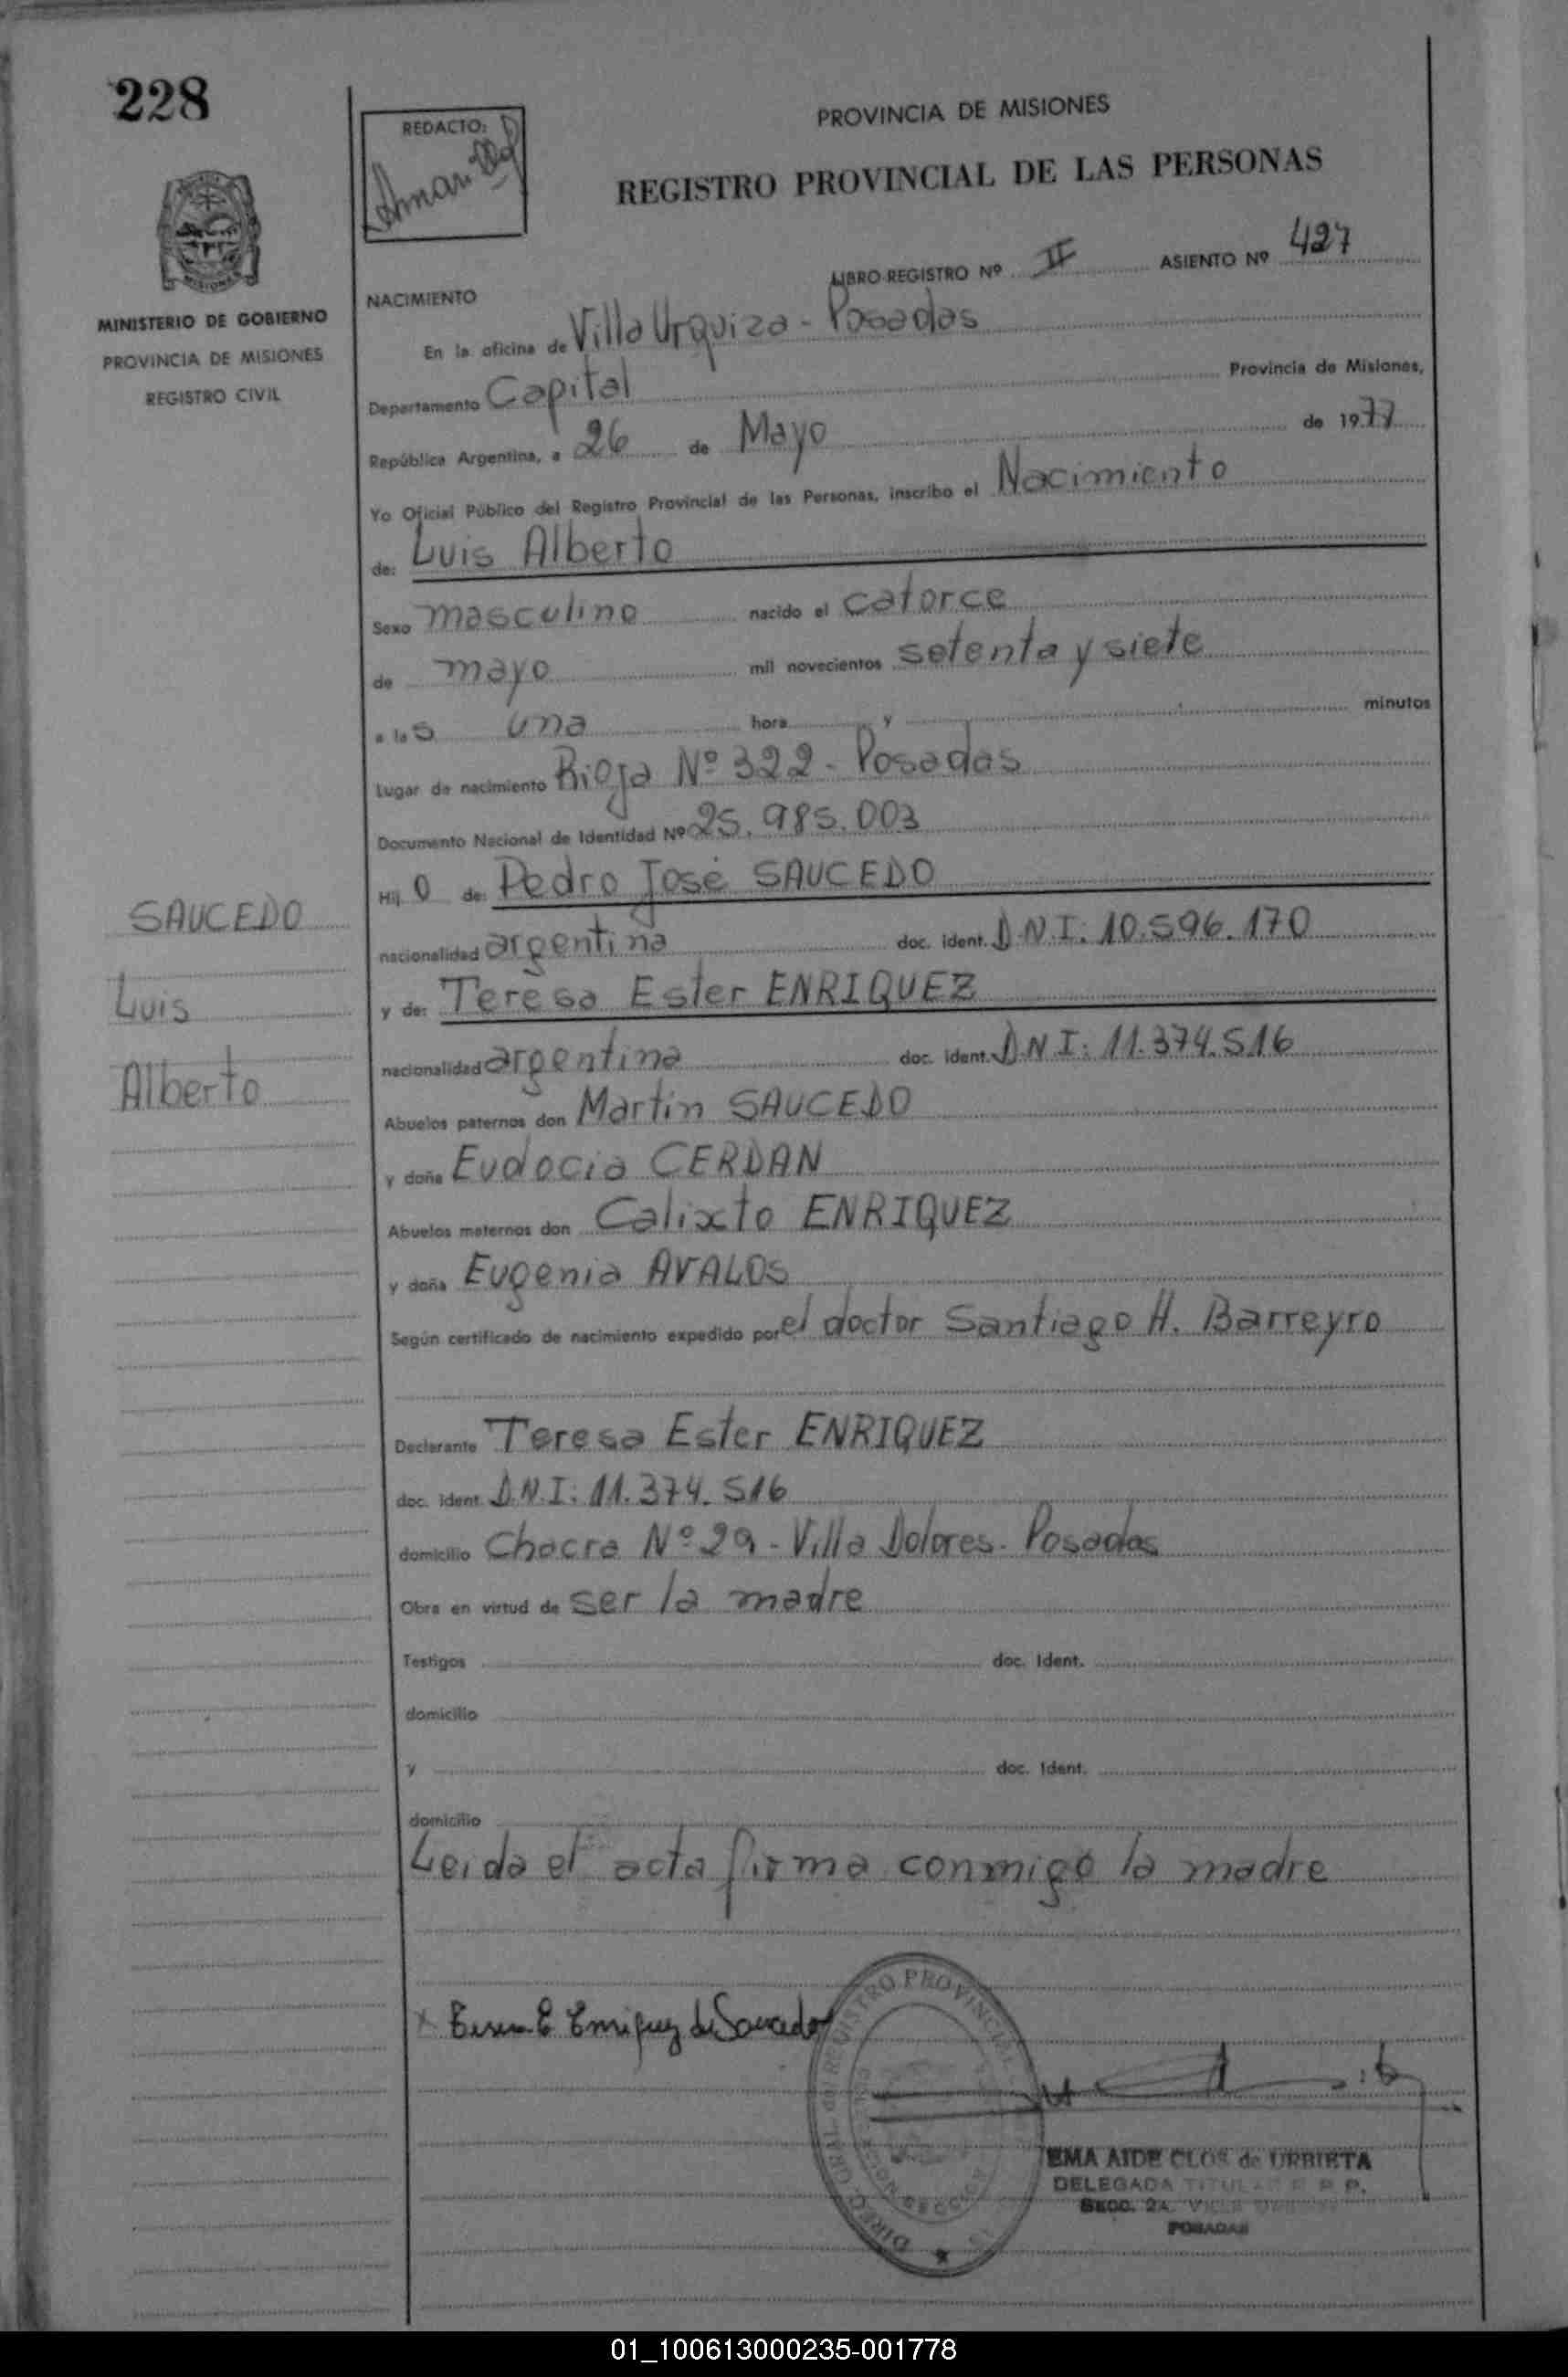 228
REDACTO:
PROVINCIA DE MISIONES
REGISTRO PROVINCIAL DE LAS PERSONAS
MINISTERIO DE GOBIERNO
PROVINCIA DE MISIONES
REGISTRO CIVIL
LIBRO REGISTRO Nº II ASIENTO Nº 427
NACIMIENTO
En la oficina de Villa Urquiza - Posadas
Departamento Capital Provincia de Misiones,
República Argentina, a 26 de Mayo de 1977
Yo Oficial Público del Registro Provincial de las Personas, inscribo el Nacimiento
de: Luis Alberto
Sexo masculino nacido el catorce
de mayo mil novecientos setenta y siete
a las una hora y minutos
Lugar de nacimiento Rioja Nº 322 - Posadas
Documento Nacional de Identidad Nº 25.985.003
Hijo de: Pedro José SAUCEDO
SAUCEDO
Luis
Alberto
nacionalidad argentina doc. ident. D.N.I. 10.596.170
y de: Teresa Ester ENRIQUEZ
nacionalidad argentina doc. ident. D.N.I: 11.374.516
Abuelos paternos don Martín SAUCEDO
y doña Eudocia CERDAN
Abuelos maternos don Calixto ENRIQUEZ
y doña Eugenia AVALOS
Según certificado de nacimiento expedido por el doctor Santiago H. Barreyro
Declarante Teresa Ester ENRIQUEZ
doc. ident. D.N.I: 11.374.516
domicilio Chacra Nº 29 - Villa Dolores - Posadas
Obra en virtud de ser la madre
Testigos doc. Ident.
domicilio
y doc. Ident.
domicilio
Leida el acta firma conmigo la madre
Teresa E Enriquez de Saucedo
DIREC. GRAL. del REGISTRO PROVINCIAL
EMA AIDE CLOS de URBIETA
DELEGADA TITULAR R. P. P.
SECC. 2A. VILLA
POSADAS
01_100613000235-001778